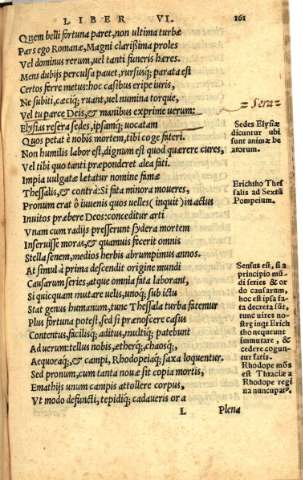 LIBER VI. 161
Quem belli fortuna paret, non ultima turbæ
Pars ego Romanæ, Magni clarißima proles
Vel dominus rerum, uel tanti funeris hæres.
Mens dubijs perculsa pauet, rursusq; parata est
Certos ferre metus: hoc casibus eripe iuris,
Ne subiti, cæciq; ruant, uel numina torque,
Vel tu parce Deis, & manibus exprime uerum:
Elysias resera sedes, ipsamq; uocatam
Quos petat è nobis mortem, tibi coge fateri.
Non humilis labor est, dignum est quod quærere cures,
Vel tibi quo tanti præponderet alea fati.
Impia uulgatæ letatur nomine famæ
Thessalis, & contrà: Si fata minora moueres,
Pronum erat ô iuuenis quos uelles (inquit) in actus
Inuitos præbere Deos: conceditur arti
Vnam cum radijs presserunt sydera mortem
Inseruisse moras, & quamuis fecerit omnis
Stella senem, medios herbis abrumpimus annos.
At simul à prima descendit origine mundi
Causarum series, atque omnia fata laborant,
Si quicquam mutare uelis, unoq; sub ictu
Stat genus humanum, tunc Thessala turba fatemur
Plus fortuna potest, sed si prænoscere casus
Contentus, facilisq; aditus, multiq; patebunt
Ad uerum: tellus nobis, æther q;, chaosq;,
Aequoraq;, & campi, Rhodopeiaq; saxa loquentur.
Sed pronum, cum tanta nouæ sit copia mortis,
Emathijs unum campis attollere corpus,
Vt modo defuncti, tepidiq; cadaueris ora
L Plena
Sera
Sedes Elysiæ
dicuntur ubi
sunt animæ be
atorum.
Erichtho Thes
salis ad Sextũ
Pompeium.
Sensus est, si a
principio mũ
di series & or
do causarum,
hoc est ipsa fa
ta decreta sũt,
tunc uires no
stræ ingt Erich
tho nequeunt
immutare, &
cedere cogun-
tur fatis.
Rhodope mõs
est Thraciæ a
Rhodope regi
na nuncupat⁹.